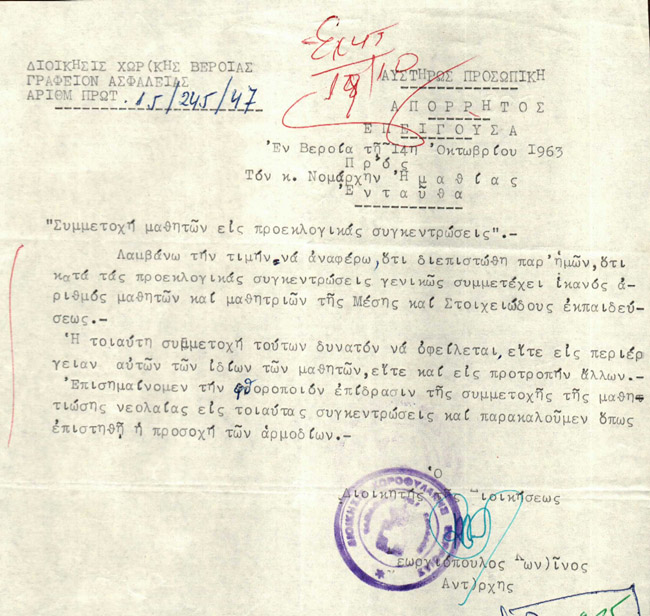 ΔΙΟΙΚΗΣΙΣ ΧΩΡ(ΚΗΣ ΒΕΡΟΙΑΣ
ΓΡΑΦΕΙΟΝ ΑΣΦΑΛΕΙΑΣ
ΑΡΙΘΜ ΠΡΩΤ. 15/245/47
ΑΥΣΤΗΡΩΣ ΠΡΟΣΩΠΙΚΗ
ΑΠΟΡΡΗΤΟΣ
ΕΠΕΙΓΟΥΣΑ
Ἐν Βεροίᾳ τῇ 14η Ὀκτωβρίου 1963
Πρός
Τόν κ. Νομάρχην Ἠμαθίας
Ἐνταῦθα
"Συμμετοχή μαθητῶν εἰς προεκλογικάς συγκεντρώσεις".-
Λαμβάνω τήν τιμήν νά ἀναφέρω, ὅτι διεπιστώθη παρ'ἡμῶν, ὅτι
κατά τάς προεκλογικάς συγκεντρώσεις γενικῶς συμμετέχει ἱκανός ἀ-
ριθμός μαθητῶν καί μαθητριῶν τῆς Μέσης καί Στοιχειώδους ἐκπαιδεύ-
σεως.-
Ἡ τοιαύτη συμμετοχή τούτων δυνατόν νά ὀφείλεται, εἴτε εἰς περιέρ
γειαν αὐτῶν τῶν ἰδίων τῶν μαθητῶν, εἴτε καί εἰς προτροπήν ἄλλων.-
Ἐπισημαίνομεν τήν φθοροποιόν ἐπίδρασιν τῆς συμμετοχῆς τῆς μαθη-
τιώσης νεολαίας εἰς τοιαύτας συγκεντρώσεις καί παρακαλοῦμεν ὅπως
ἐπιστηθῇ ἡ προσοχή τῶν ἁρμοδίων.-
Ὁ
Διοικητής τῆς Διοικήσεως
εωργιόπουλος Κων)ῖνος
Αντ)ρχης